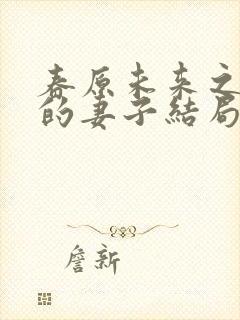 春原未来之
的妻子結局
詹新